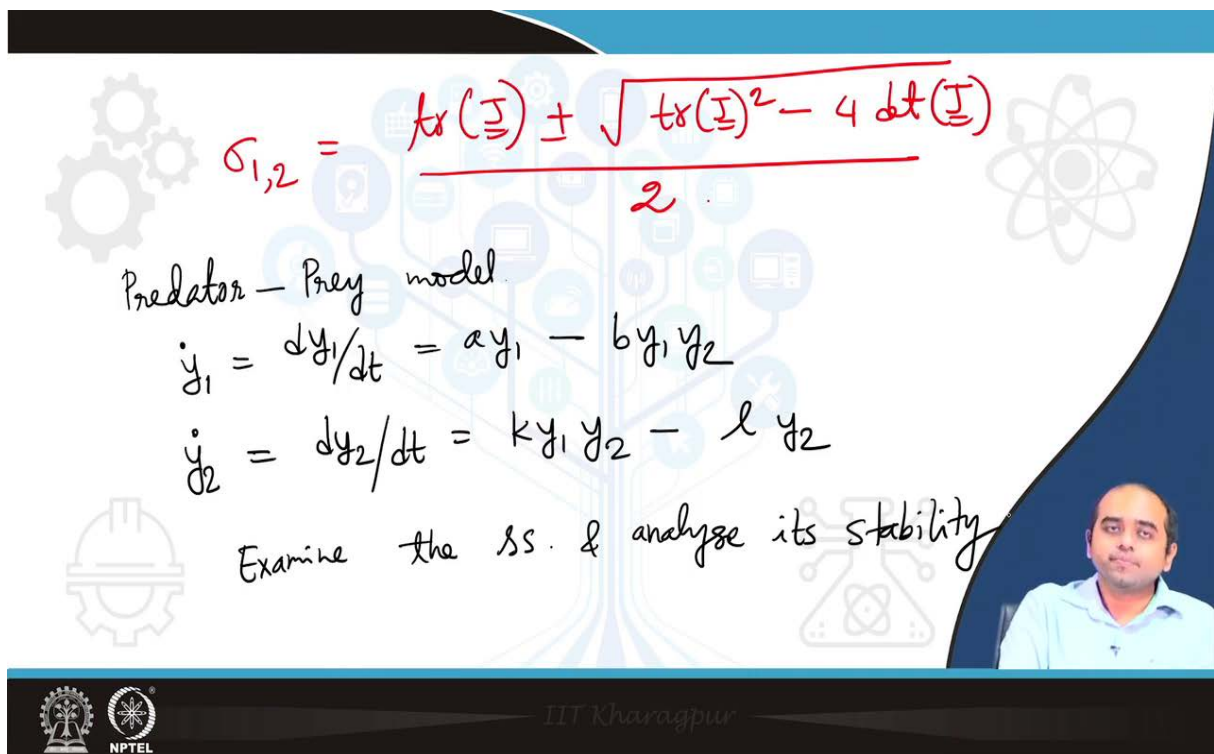 σ₁,₂ = tr(J) ± √tr(J)² − 4 det(J) / 2
Predator – Prey model.
ẏ₁ = dy₁/dt = ay₁ − by₁y₂
ẏ₂ = dy₂/dt = ky₁y₂ − ly₂
Examine the SS. & analyze its stability
IIT Kharagpur
NPTEL